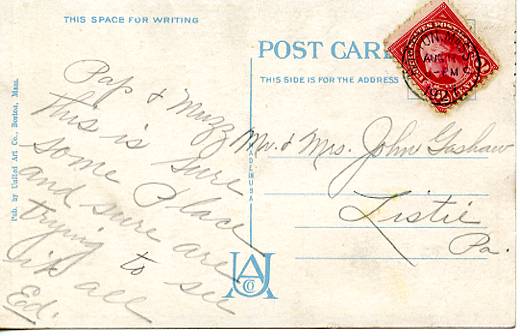 THIS SPACE FOR WRITING
POST CARD
THIS SIDE IS FOR THE ADDRESS
Pap & Muzz
This is sure
some place
and sure are
trying to see
it all
Ed.
Mr. & Mrs. John Gashaw
Listie
Pa.
Pub. by United Art Co., Boston, Mass.
MADE IN USA
UNITED STATES POSTAGE
AUG
PM
UA Co